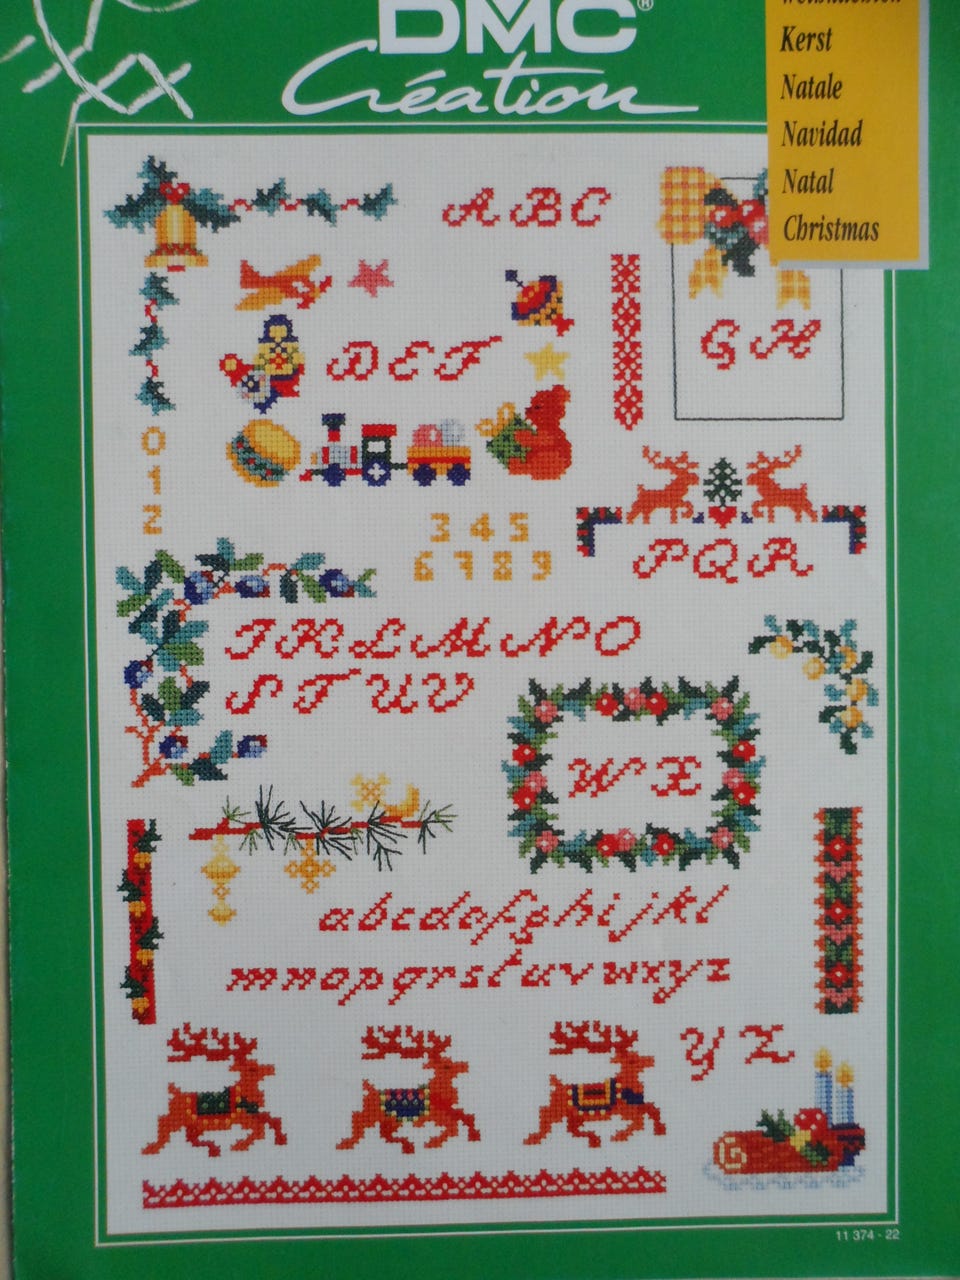 DMC®
Création
Kerst
Natale
Navidad
Natal
Christmas
ABC
DEF
GH
0
1
2
3 4 5
6 7 8 9
PQR
KLMNO
STUV
WX
abcdefghijkl
mnopqrstuvwxyz
YZ
11 374 - 22